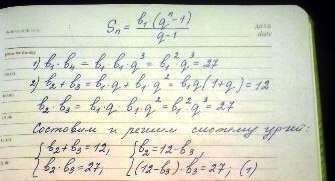 Sₙ = b₁(qⁿ-1) / q-1
1) b₁·b₄ = b₁·b₁·q³ = b₁²q³ = 27
2) b₂+b₃ = b₁·q+b₁q² = b₁q(1+q) = 12
b₂·b₃ = b₁·q·b₁·q² = b₁²q³ = 27
Составим и решим систему ур-ний:
{b₂+b₃=12, {b₂=12-b₃,
{b₂·b₃=27, {(12-b₃)·b₃=27, (1)